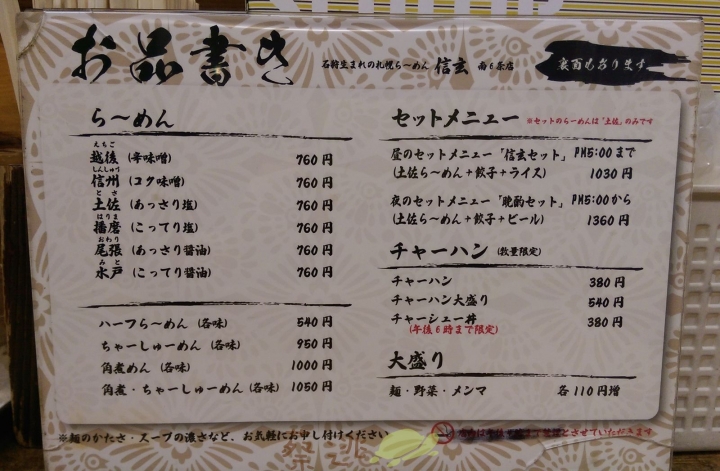 お品書き
石狩生まれの札幌ら〜めん 信玄 南6条店
裏面もあります
ら〜めん
えちご
越後 (辛味噌) 760円
しんしゅう
信州 (コク味噌) 760円
とさ
土佐 (あっさり塩) 760円
はりま
播磨 (こってり塩) 760円
おわり
尾張 (あっさり醤油) 760円
みと
水戸 (こってり醤油) 760円
ハーフら〜めん (各味) 540円
ちゃーしゅーめん (各味) 950円
角煮めん (各味) 1000円
角煮・ちゃーしゅーめん (各味) 1050円
セットメニュー ※セットのらーめんは「土佐」のみです
昼のセットメニュー「信玄セット」 PM5:00まで
(土佐ら〜めん+餃子+ライス) 1030円
夜のセットメニュー「晩酌セット」 PM5:00から
(土佐ら〜めん+餃子+ビール) 1360円
チャーハン (数量限定)
チャーハン 380円
チャーハン大盛り 540円
チャーシュー丼 380円
(午後6時まで限定)
大盛り
麺・野菜・メンマ 各110円増
※麺のかたさ・スープの濃さなど、お気軽にお申し付けください
とさせていただきます